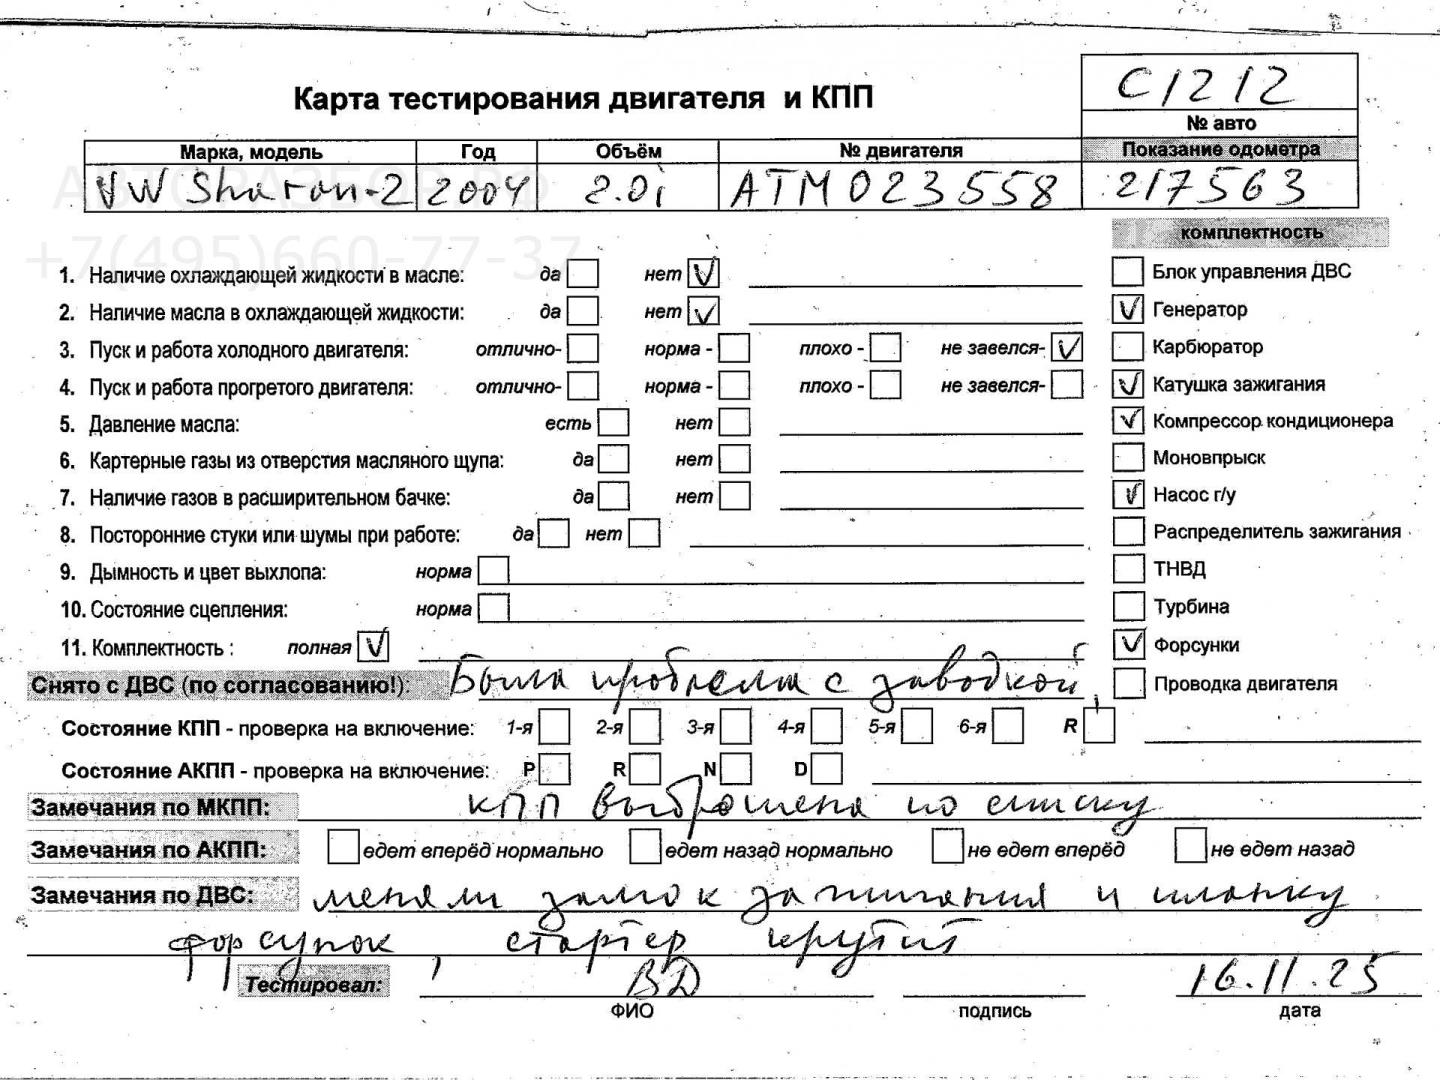 С1212
Карта тестирования двигателя и КПП
№ авто
Марка, модель Год Объём № двигателя Показание одометра
VW Sharan-2 2004 2.0i ATM023558 217563
АВТОРАЗБОР.РФ
+7(495)660-77-37
комплектность
1. Наличие охлаждающей жидкости в масле: да нет V Блок управления ДВС
2. Наличие масла в охлаждающей жидкости: да нет V V Генератор
3. Пуск и работа холодного двигателя: отлично- норма - плохо - не завелся- V Карбюратор
4. Пуск и работа прогретого двигателя: отлично- норма - плохо - не завелся- V Катушка зажигания
5. Давление масла: есть нет V Компрессор кондиционера
6. Картерные газы из отверстия масляного щупа: да нет Моновпрыск
7. Наличие газов в расширительном бачке: да нет V Насос г/у
8. Посторонние стуки или шумы при работе: да нет Распределитель зажигания
9. Дымность и цвет выхлопа: норма ТНВД
10. Состояние сцепления: норма Турбина
11. Комплектность : полная V V Форсунки
Снято с ДВС (по согласованию!): Была проблема с заводкой, Проводка двигателя
Состояние КПП - проверка на включение: 1-я 2-я 3-я 4-я 5-я 6-я R
Состояние АКПП - проверка на включение: P R N D
Замечания по МКПП: КПП выброшена по списку
Замечания по АКПП: едет вперёд нормально едет назад нормально не едет вперёд не едет назад
Замечания по ДВС: меняли замок зажигания и планку
форсунок, стартер крутит
Тестировал: ВД 16.11.25
ФИО подпись дата